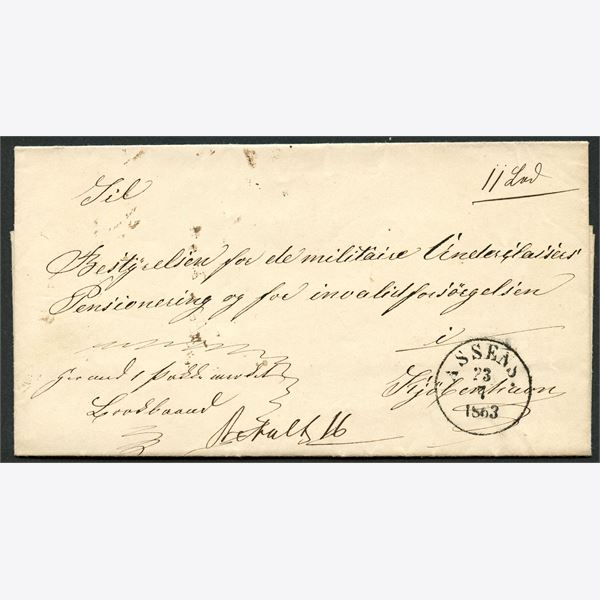 Til
11 Lod
Bestyrelsen for de militaire Underclassers
Pensionering og for invalidforsørgelsen
i
Kjöbenhavn
ASSENS.
23
7
1863
1 Pakke
Betalt 16